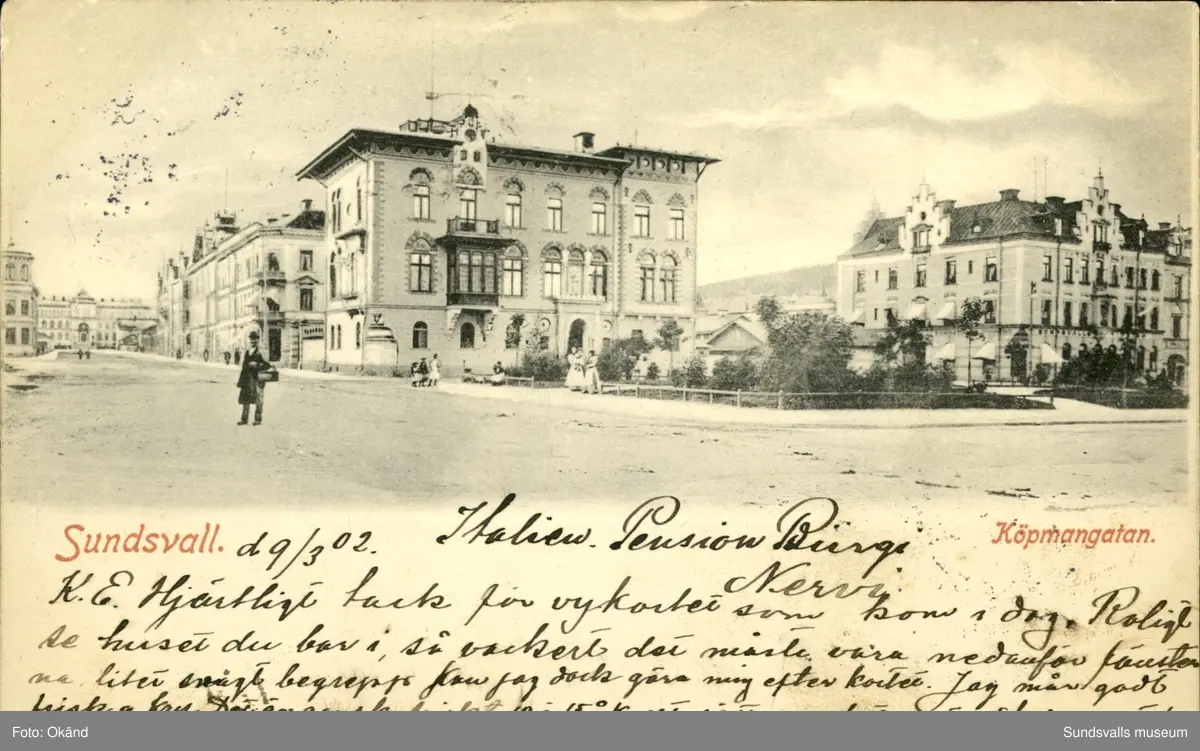 Sundsvall. d 9/3 02. Italien. Pension Bürgi Köpmangatan.
Nervi
K. E. Hjärtligt tack för vykortet som kom i dag. Roligt
se huset du bor i, så vackert det måste vara nedanför fönster
na, litet svagt begrepp kan jag dock göra mig efter kortet. Jag mår godt
frisk o kry.
Foto: Okänd
Sundsvalls museum